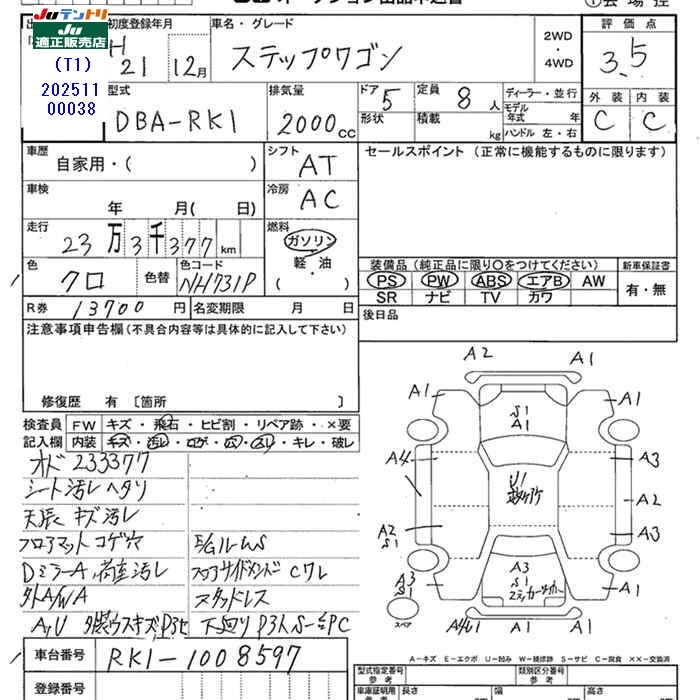 ①会場控
Juテントリ
Ju適正販売店
(T1)
202511
00038
初度登録年月 車名・グレード 評価点
H 21 12月 ステップワゴン 2WD・4WD 3.5
型式 排気量 ドア 定員 ディーラー・並行 外装 内装
DBA-RK1 2000cc 5 8人 モデル年式 年 C C
形状 積載 kg ハンドル 左・右
車歴 シフト セールスポイント (正常に機能するものに限ります)
自家用・( ) AT
車検 冷房
年 月( 日) AC
走行 燃料
23万3千377km ガソリン
軽・油
( ・ )
色 色替 色コード 装備品 (純正品に限り○をつけてください) 新車保証書
クロ NH731P PS PW ABS エアB AW 有・無
SR ナビ TV カワ
R券 13700円 名変期限 月 日 後日品
注意事項申告欄(不具合内容等は具体的に記入して下さい)
修復歴 有 〔箇所 〕
検査員 FW キズ・飛石・ヒビ割・リペア跡・×要
記入欄 内装 キズ・汚レ・コゲ・穴・スレ・キレ・破レ
オド 233377
シート汚レ ヘタリ
天張 キズ汚レ
フロアマット コゲ穴 E/Gルーム S
DミラーA, 荷室汚レ ステップサイドメンド C ワレ
外A/W A スタッドレス
A,U 外装ウスキズ P3セ 下回り P3人 S-台PC
A2 A1
A1 A1
S1
A1
A4 A3
U1
A2
A2
S1 A3
A3
S1
A3
S1 A1
スペア A4U1 A1
A-キズ E-エクボ U-凹み W-補修跡 S-サビ C-腐食 XX-交換済
車台番号 RK1-1008597
登録番号
型式指定番号 参考 類別区分番号 参考
車庫証明用 参考 長さ cm 幅 cm 高さ cm